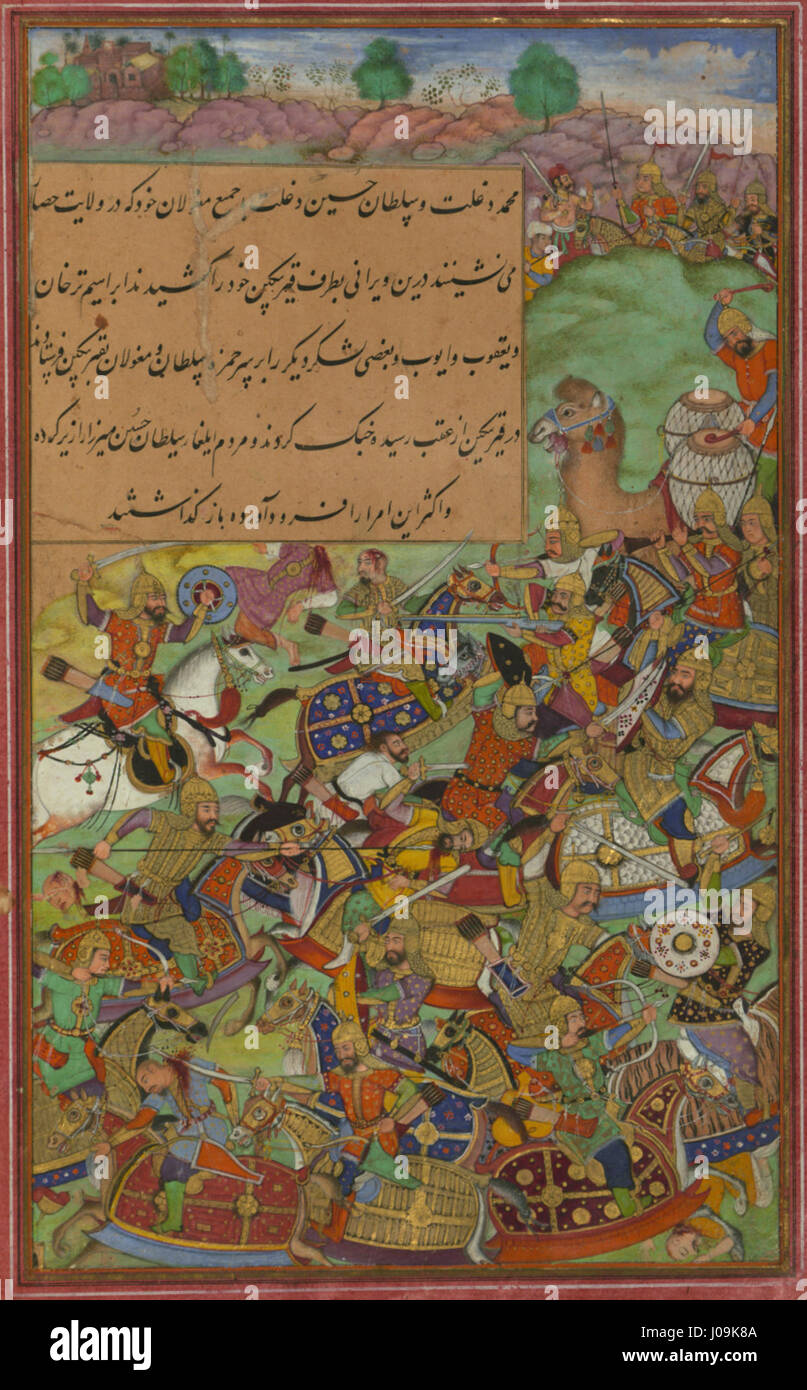 محمد دغلت و سپلطان حسین دغلت جمع مغولان خود که در ولایت حصار
می‌نشینند درین ویرانی بطرف قیر تکین خود را کشیدند ابراسیم ترخان
و یعقوب و ایوب و بعضی لشکر دیگر را بر سپر حمزه سپلطان و مغولان بقیر تکین فرستادند
در قیر تکین از عقب رسیده جنک کردند و مردم ایلغار سپلطان حسین میرزا را زیر کرده
و اکثر این امرا را فرود آورده باز گذاشتند
alamy stock photo
J09K8A
www.alamy.com